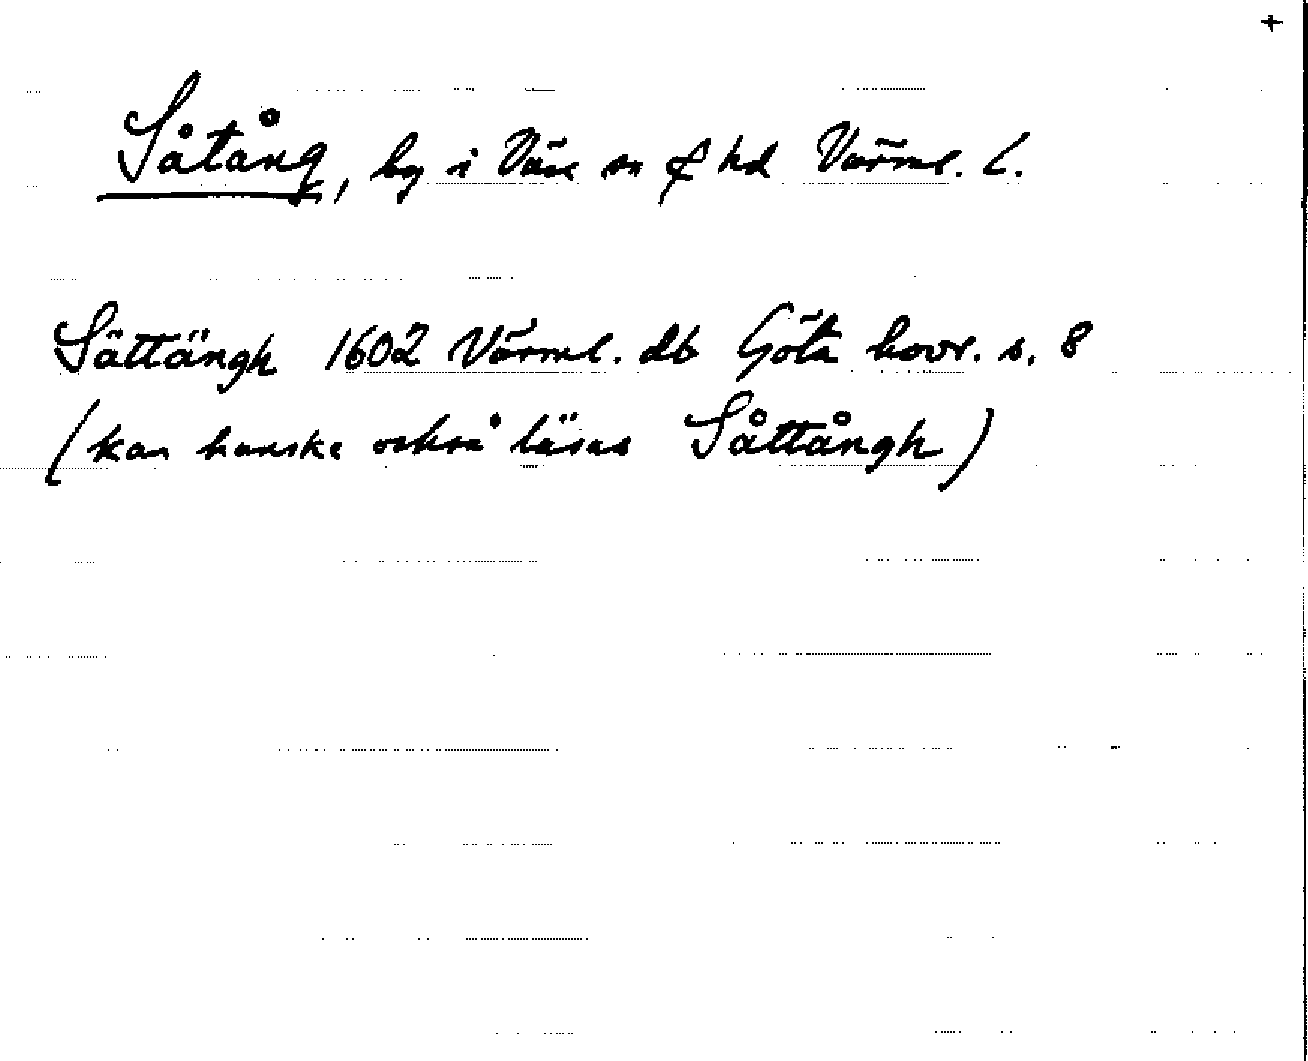 +
Såtång, by i Väse sn o hd Värml. l.
Sättängh 1602 Värml. db Göta hovr. s. 8
(kan kanske också läsas Såttångh)